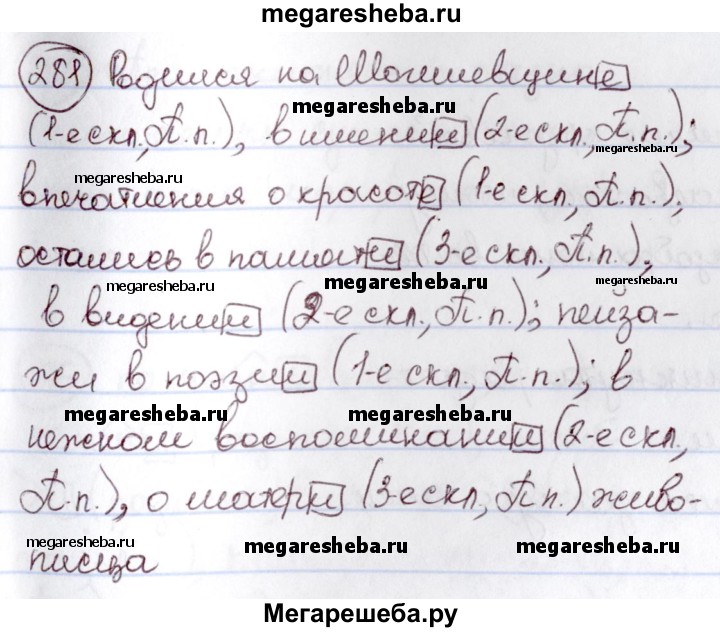 megaresheba.ru
281 Родился на Могилевщине
megaresheba.ru
(1-е скл., П.п.), в имении (2-е скл., П.п.);
megaresheba.ru megaresheba.ru
впечатления о красоте (1-е скл., П.п.),
остались в памяти (3-е скл., П.п.),
megaresheba.ru megaresheba.ru megaresheba.ru
в видении (2-е скл., П.п.); пейза-
жи в поэзии (1-е скл., П.п.); в
megaresheba.ru megaresheba.ru
нежном воспоминании (2-е скл.,
П.п.), о матери (3-е скл., П.п.) живо-
megaresheba.ru megaresheba.ru megaresheba.ru
писца
Мегарешеба.ру